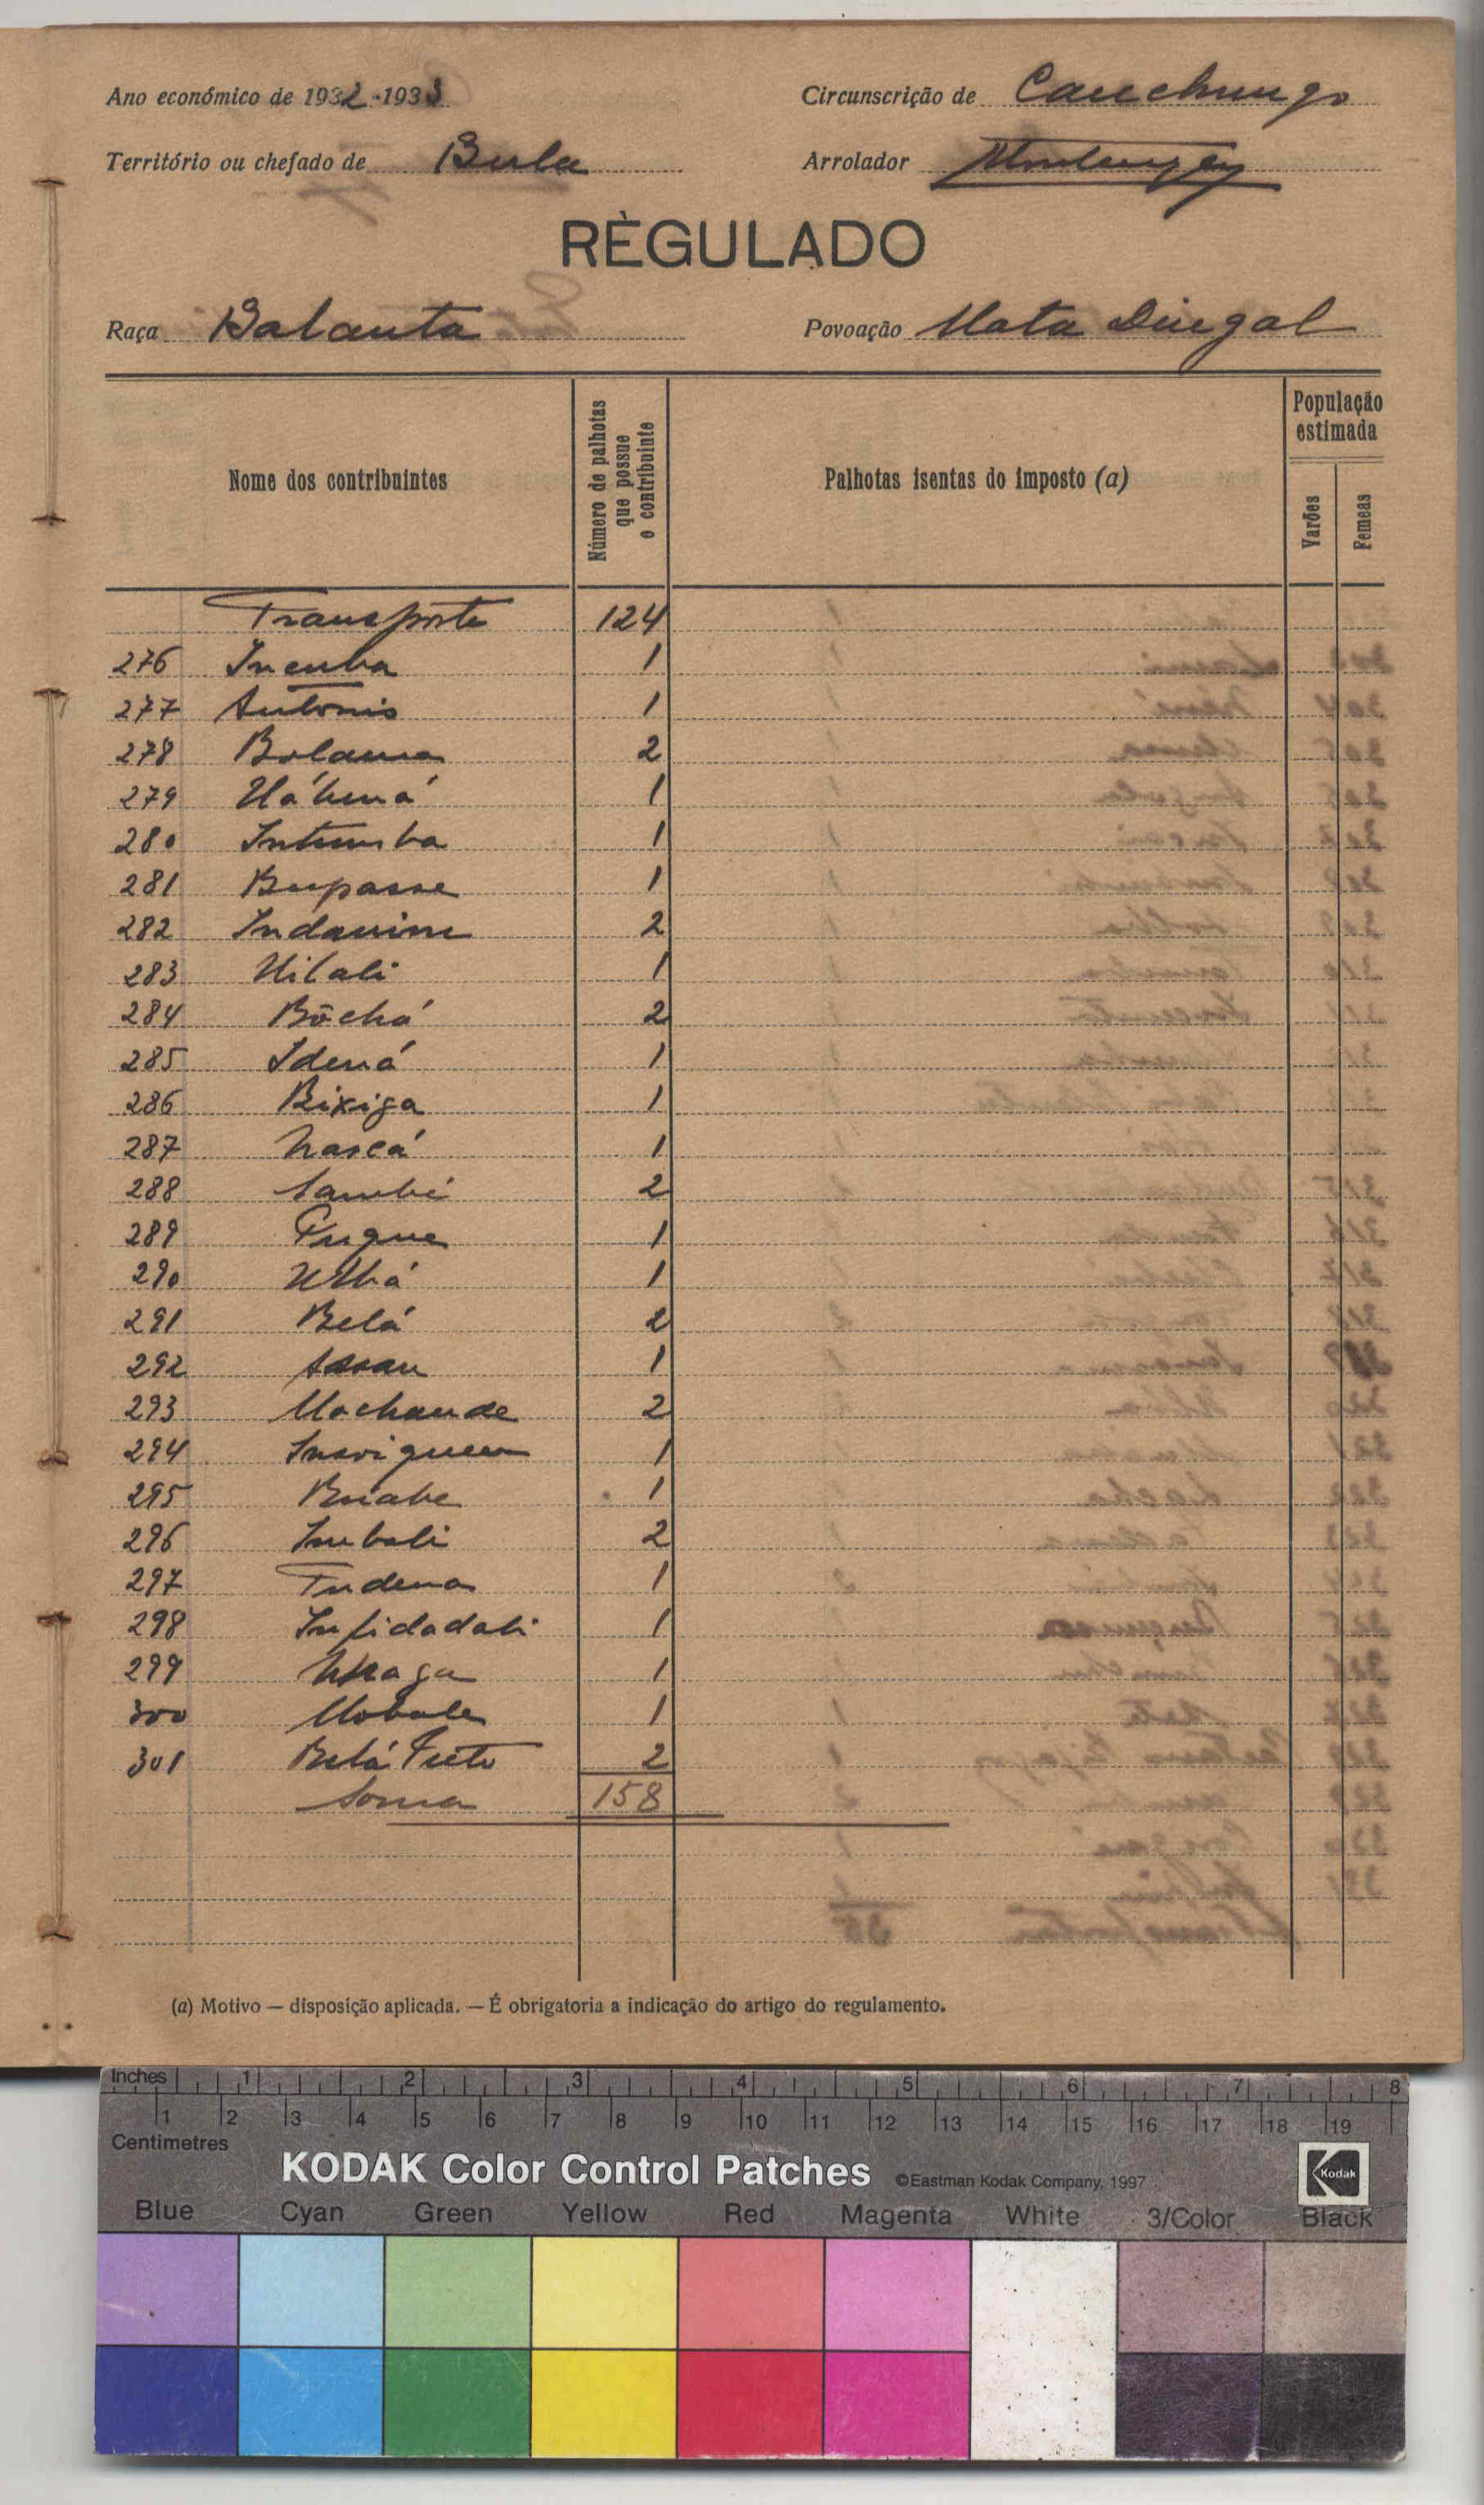 Ano económico de 1932-1933
Circunscrição de Canchungo
Território ou chefado de Bula
Arrolador
RÈGULADO
Raça Balanta
Povoação Mata Dingal
Nome dos contribuintes
Número de palhotas que possue o contribuinte
Palhotas isentas do imposto (a)
População estimada
Varões
Femeas
Transporte 124
276 Incuba 1
277 Antonio 1
278 Bolama 2
279 1
280 Intumba 1
281 Bupasse 1
282 2
283 1
284 Bõchá 2
285 Idená 1
286 Bixiga 1
287 Nascá 1
288 2
289 1
290 1
291 Belá 2
292 1
293 Mochande 2
294 1
295 Buabe 1
296 Imbali 2
297 1
298 Infidadali 1
299 1
300 1
301 Belá Preto 2
Soma 158
(a) Motivo — disposição aplicada. — É obrigatoria a indicação do artigo do regulamento.
Inches 1 2 3 4 5 6 7 8
1 2 3 4 5 6 7 8 9 10 11 12 13 14 15 16 17 18 19
Centimetres
KODAK Color Control Patches ©Eastman Kodak Company, 1997
Kodak
Blue Cyan Green Yellow Red Magenta White 3/Color Black